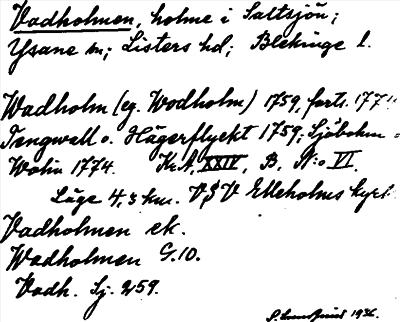 Vadholmen, holme i Saltsjön;
Ysane sn; Listers hd; Blekinge l.
Wadholm (eg. Wodholm) 1759, forts. 177
Tengwall o. Hägerflyckt 1759; Sjöbohm o
Wolin 1774. Kr.A, XXIV, B, N:o VI.
Läge 4,3 km. VSV Elleholms kyrk
Vadholmen ek.
Wadholmen G.10.
Vadh. Sj. 259.
1936.